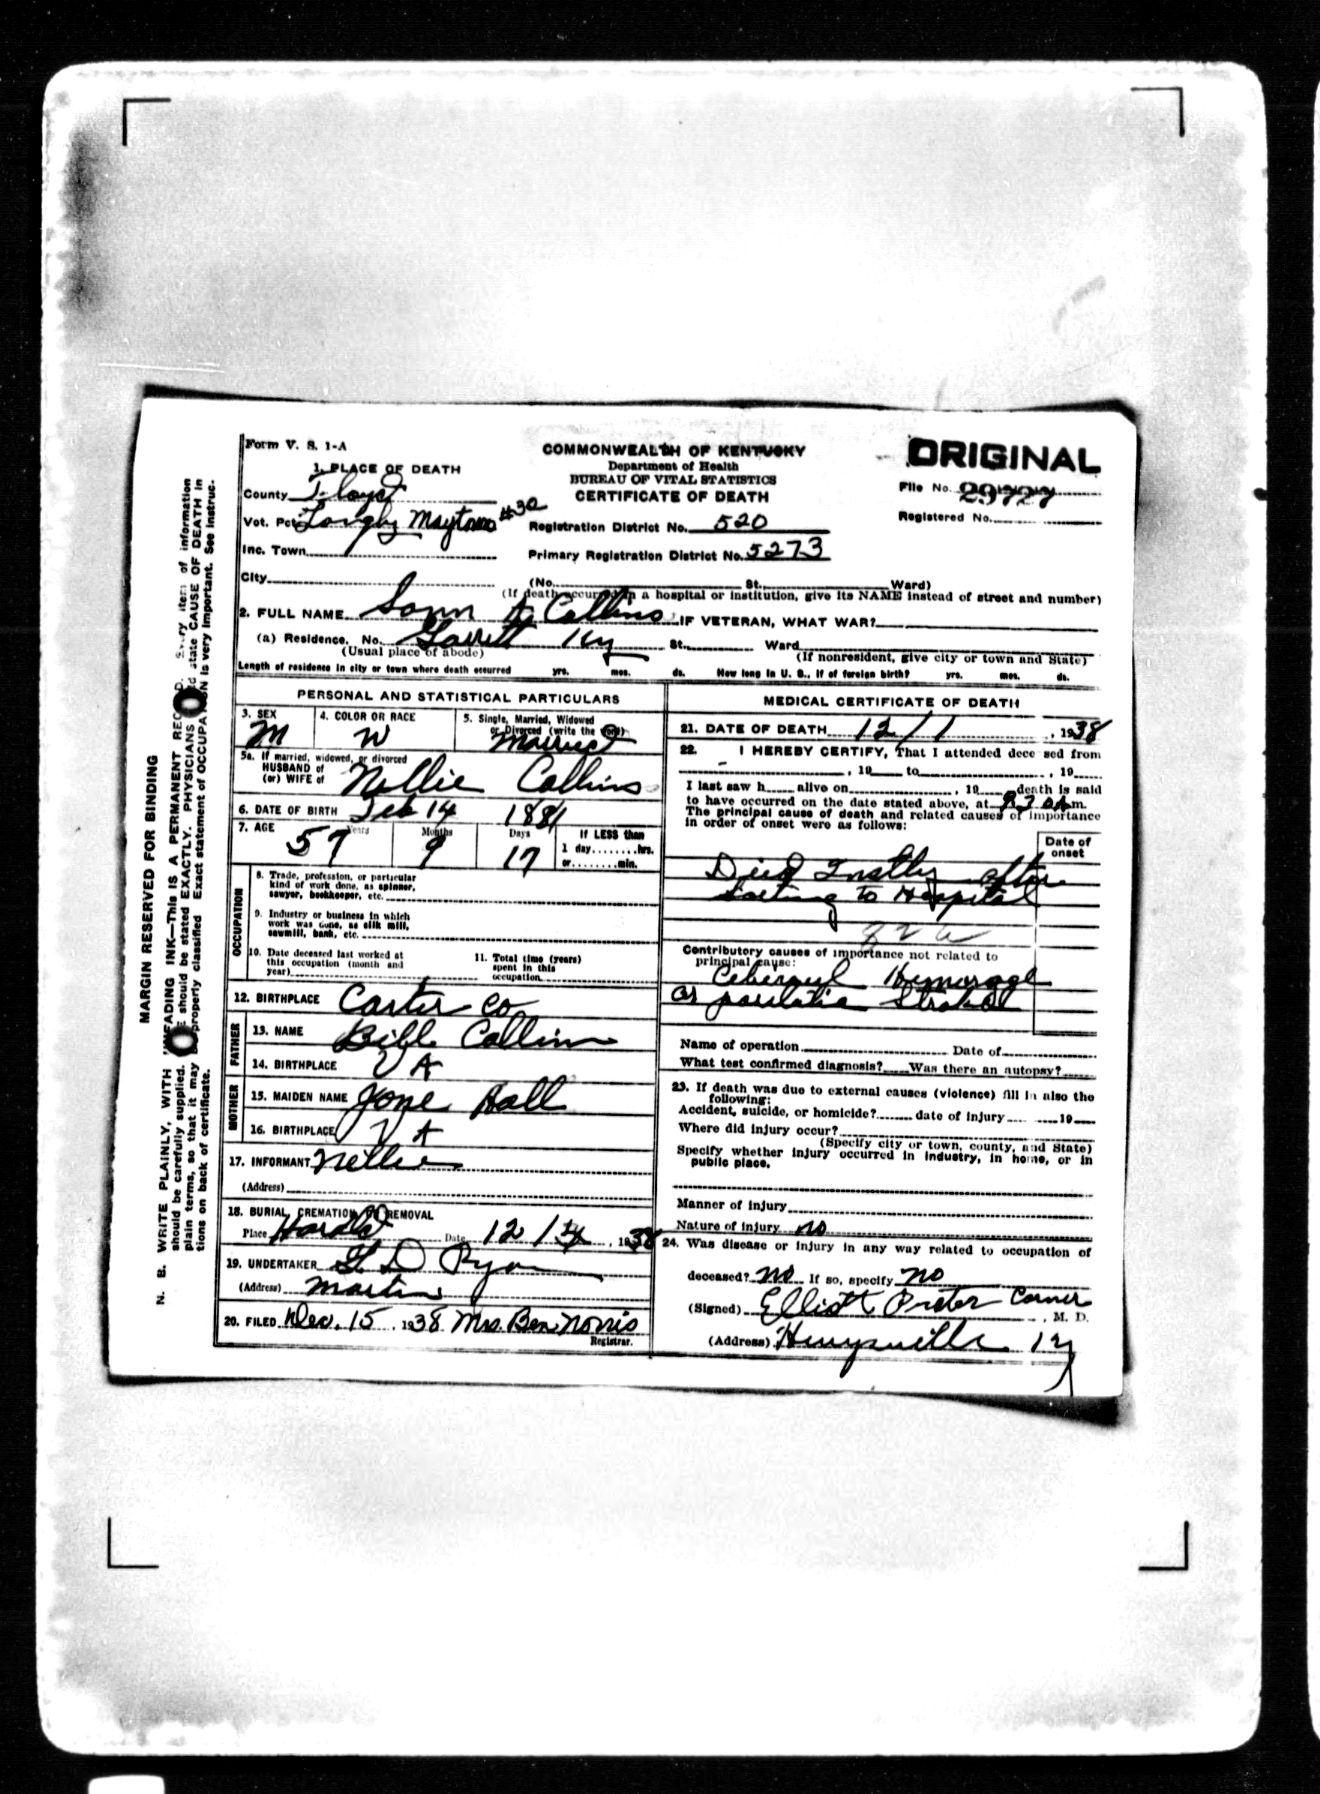 Form V. S. 1-A
COMMONWEALTH OF KENTUCKY
Department of Health
BUREAU OF VITAL STATISTICS
CERTIFICATE OF DEATH
ORIGINAL
File No. 29727
Registered No.
1. PLACE OF DEATH
County Floyd
Vot. Pct. Maytown #32
Inc. Town
City
Registration District No. 520
Primary Registration District No. 5273
(No. St. Ward)
(If death occurred in a hospital or institution, give its NAME instead of street and number)
2. FULL NAME Collins IF VETERAN, WHAT WAR?
(a) Residence. No. Garrett Ky St. Ward
(Usual place of abode) (If nonresident, give city or town and State)
Length of residence in city or town where death occurred yrs. mos. ds. How long in U. S., if of foreign birth? yrs. mos. ds.
PERSONAL AND STATISTICAL PARTICULARS
3. SEX M
4. COLOR OR RACE W
5. Single, Married, Widowed or Divorced (write the word) Married
5a. If married, widowed, or divorced
HUSBAND of
(or) WIFE of Nellie Collins
6. DATE OF BIRTH Feb 14 1881
7. AGE 57 Years 9 Months 17 Days If LESS than
1 day........hrs.
or........min.
OCCUPATION
8. Trade, profession, or particular
kind of work done, as spinner,
sawyer, bookkeeper, etc.
9. Industry or business in which
work was done, as silk mill,
sawmill, bank, etc.
10. Date deceased last worked at
this occupation (month and
year)
11. Total time (years)
spent in this
occupation
12. BIRTHPLACE Carter Co
FATHER
13. NAME Bill Collins
14. BIRTHPLACE VA
MOTHER
15. MAIDEN NAME Jone Hall
16. BIRTHPLACE VA
17. INFORMANT Nellie
(Address)
18. BURIAL, CREMATION OR REMOVAL
Place Date 12/ , 1938
19. UNDERTAKER Ryan
(Address) Martin
20. FILED Dec. 15, 1938 Mrs. Ben Norris
Registrar.
MEDICAL CERTIFICATE OF DEATH
21. DATE OF DEATH 12/1, 1938
22. I HEREBY CERTIFY, That I attended deceased from
, 19 to , 19
I last saw h alive on , 19 death is said
to have occurred on the date stated above, at m.
The principal cause of death and related causes of importance
in order of onset were as follows:
Date of
onset
Died Instly after
to Hospital
82a
Contributory causes of importance not related to
principal cause:
Hemorage
or Stroke
Name of operation Date of
What test confirmed diagnosis? Was there an autopsy?
23. If death was due to external causes (violence) fill in also the
following:
Accident, suicide, or homicide? date of injury 19
Where did injury occur?
(Specify city or town, county, and State)
Specify whether injury occurred in industry, in home, or in
public place.
Manner of injury
Nature of injury no
24. Was disease or injury in any way related to occupation of
deceased? no If so, specify no
(Signed) Elliott Corner, M. D.
(Address) Ky
MARGIN RESERVED FOR BINDING
N. B. WRITE PLAINLY, WITH UNFADING INK—This IS A PERMANENT RECORD. Every item of information
should be carefully supplied. should be stated EXACTLY. PHYSICIANS state CAUSE OF DEATH in
plain terms, so that it may properly classified Exact statement of OCCUPATION is very important. See instruc-
tions on back of certificate.